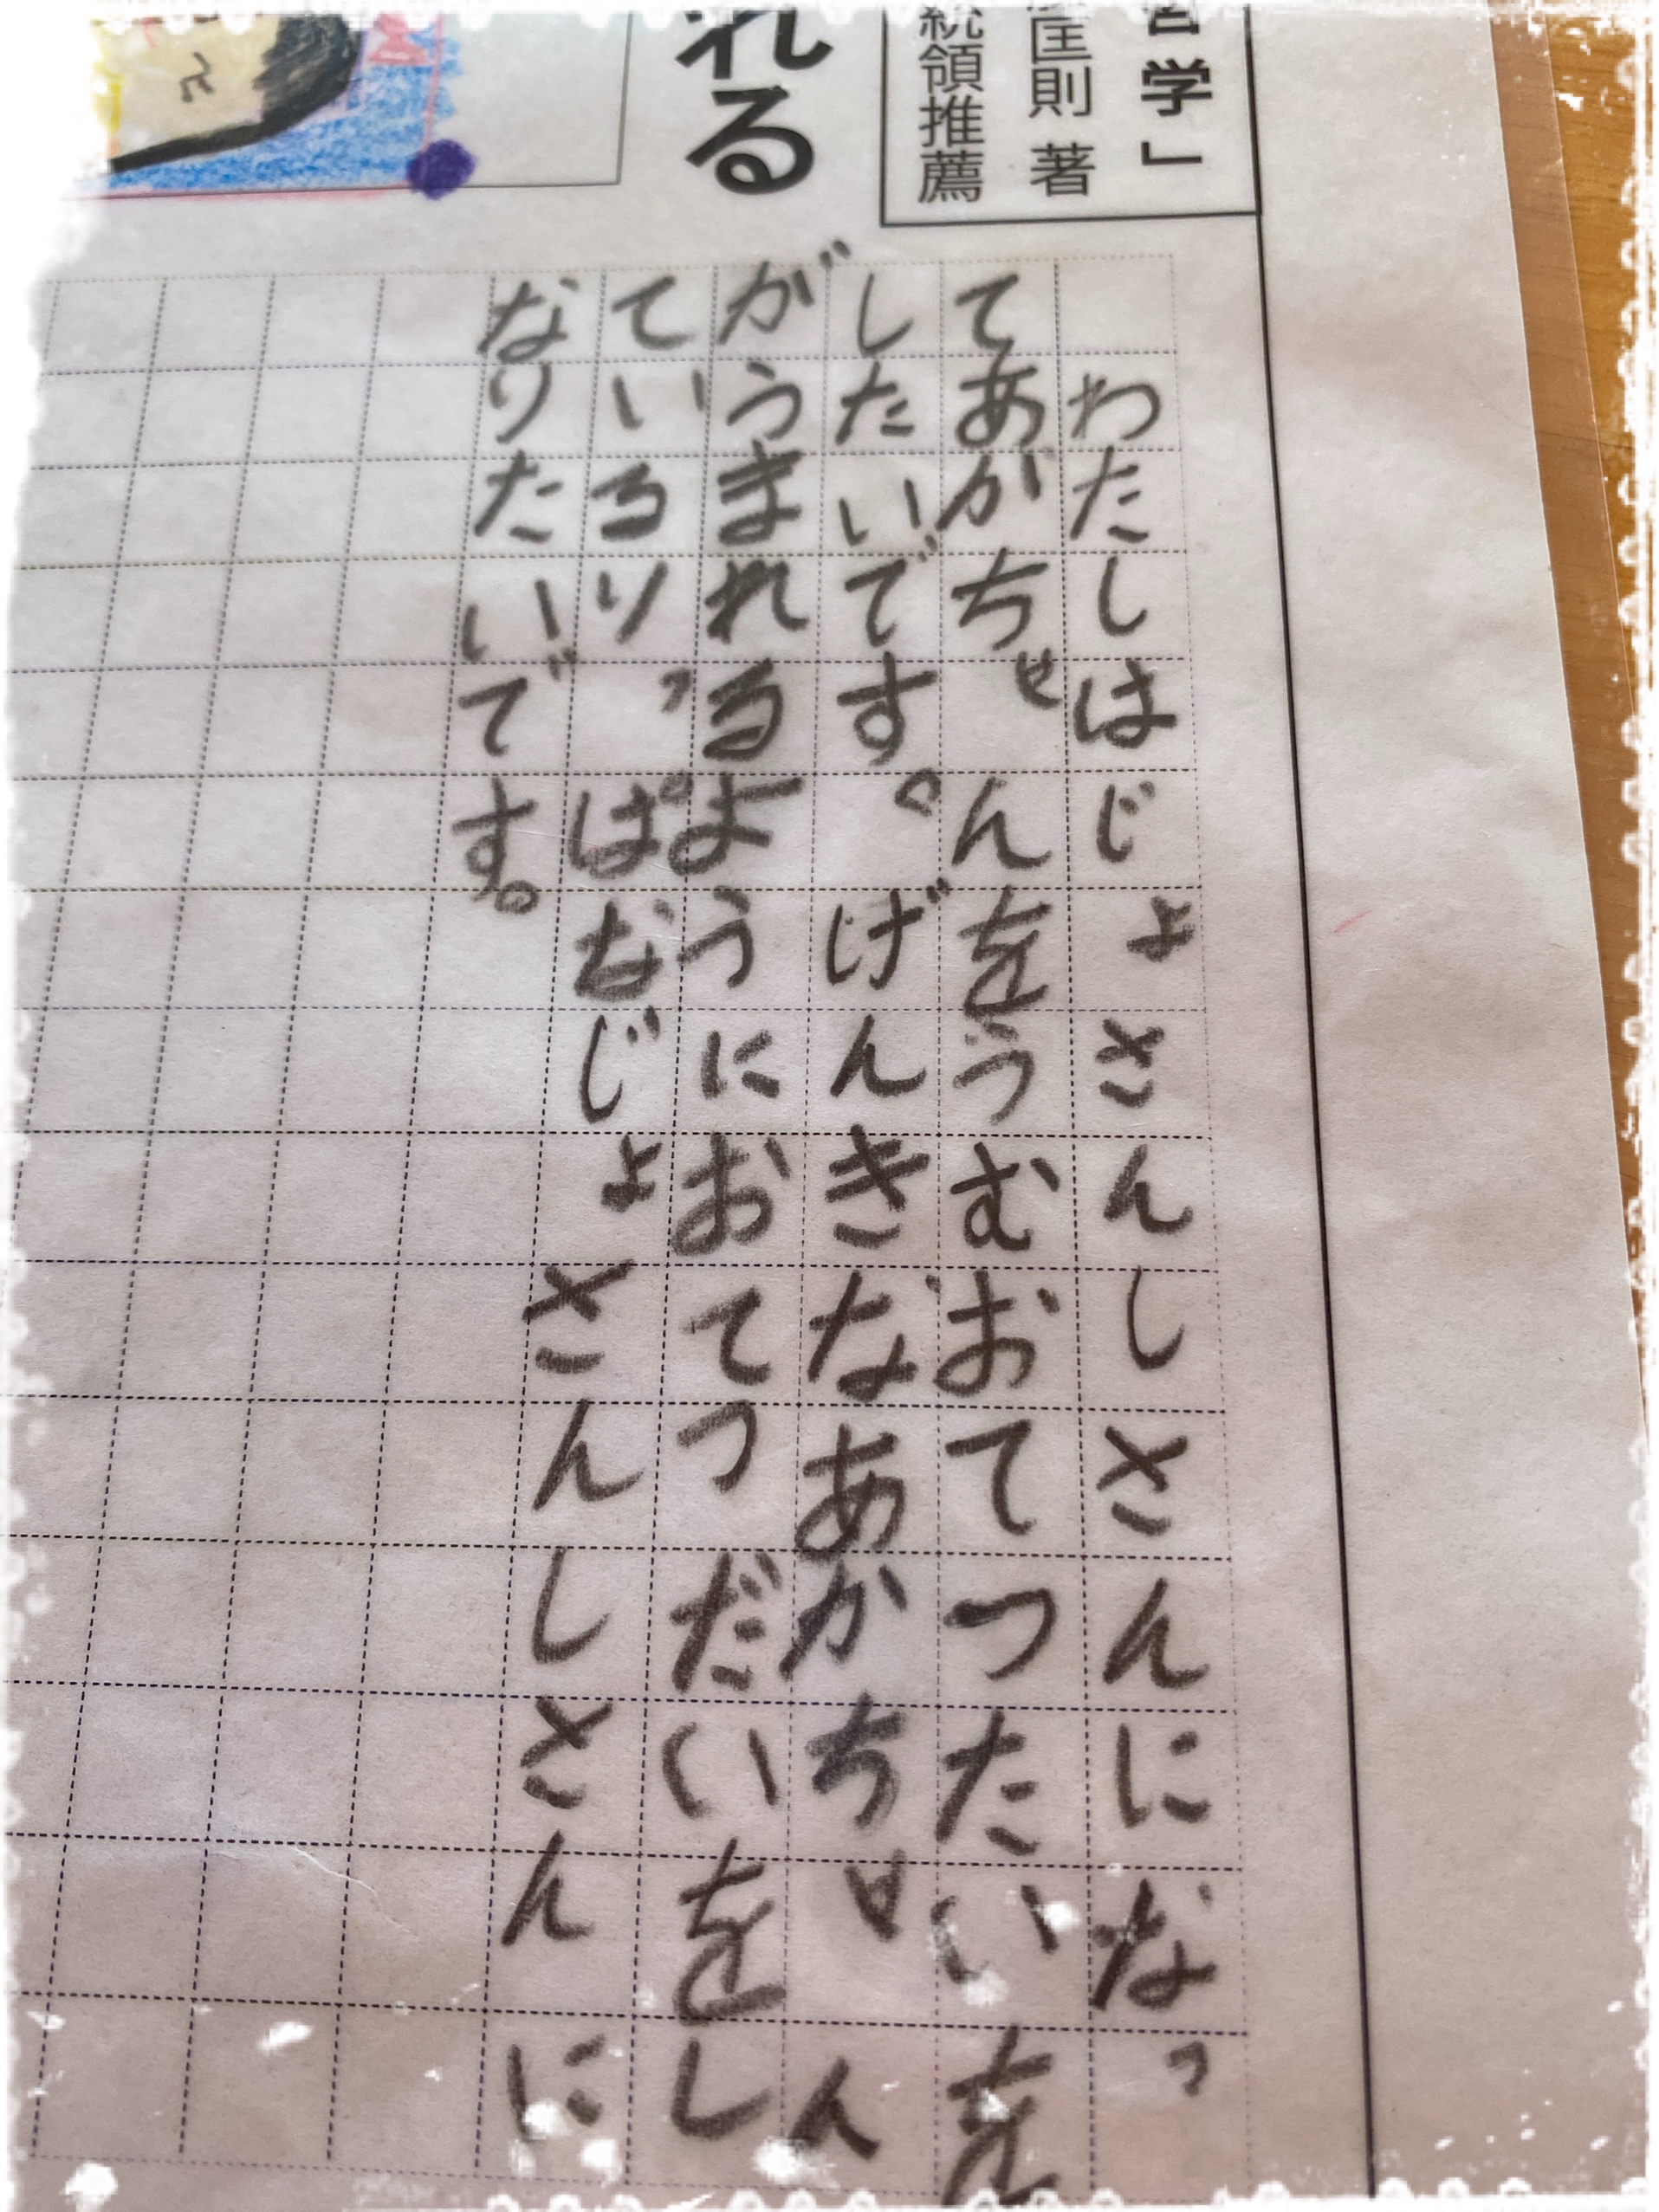 学」
匡則 著
統領推薦
れる
わたしはじょさんしさんになっ
てあかちゃんをうむおてつたいを
したいです。げんきなあかちゃん
がうまれるようにおてつだいをし
ているりっぱなじょさんしさんに
なりたいです。